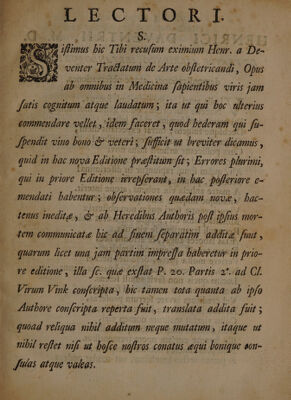 LECTORI.
S.
Sistimus hic Tibi recusum eximium Henr. a De-
venter Tractatum de Arte obstetricandi, Opus
ab omnibus in Medicina sapientibus viris jam
satis cognitum atque laudatum; ita ut qui hoc ulterius
commendare vellet, idem faceret, quod hederam qui su-
spendit vino bono & veteri; sufficit ut breviter dicamus,
quid in hac nova Editione præstitum sit; Errores plurimi,
qui in priore Editione irrepserant, in hac posteriore e-
mendati habentur; observationes quædam novæ, hac-
tenus ineditæ, & ab Heredibus Authoris post ipsius mor-
tem communicatæ hic ad finem separatim additæ sunt,
quarum licet una jam partim impressa haberetur in prio-
re editione, illa sc. quæ exstat P. 20. Partis 2æ. ad Cl.
Virum Vink conscripta, hic tamen tota quanta ab ipso
Authore conscripta reperta fuit, translata addita fuit;
quoad reliqua nihil additum neque mutatum, itaque ut
nihil restet nisi ut hosce nostros conatus æqui bonique con-
sulas atque valeas.